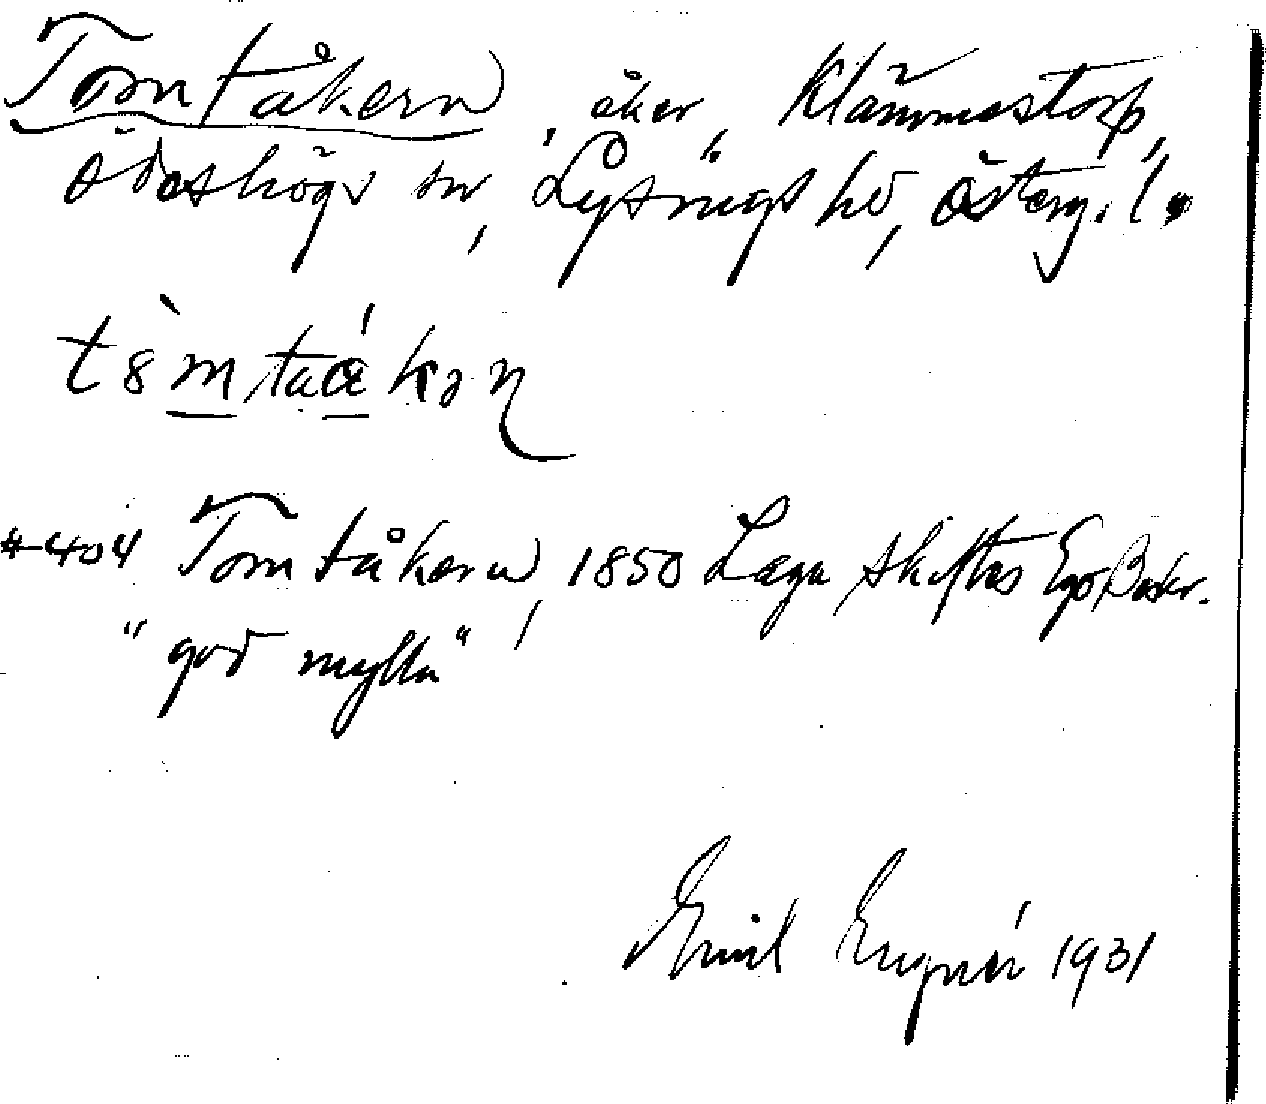 Tomtåkern, åker, Klämmestorp,
Ödeshögs sn, Lysings hd, Österg. l.
#404 Tomtåkern, 1850 Laga skiftes Ego Beskr.
"god mylla"
Emil Engnér 1931